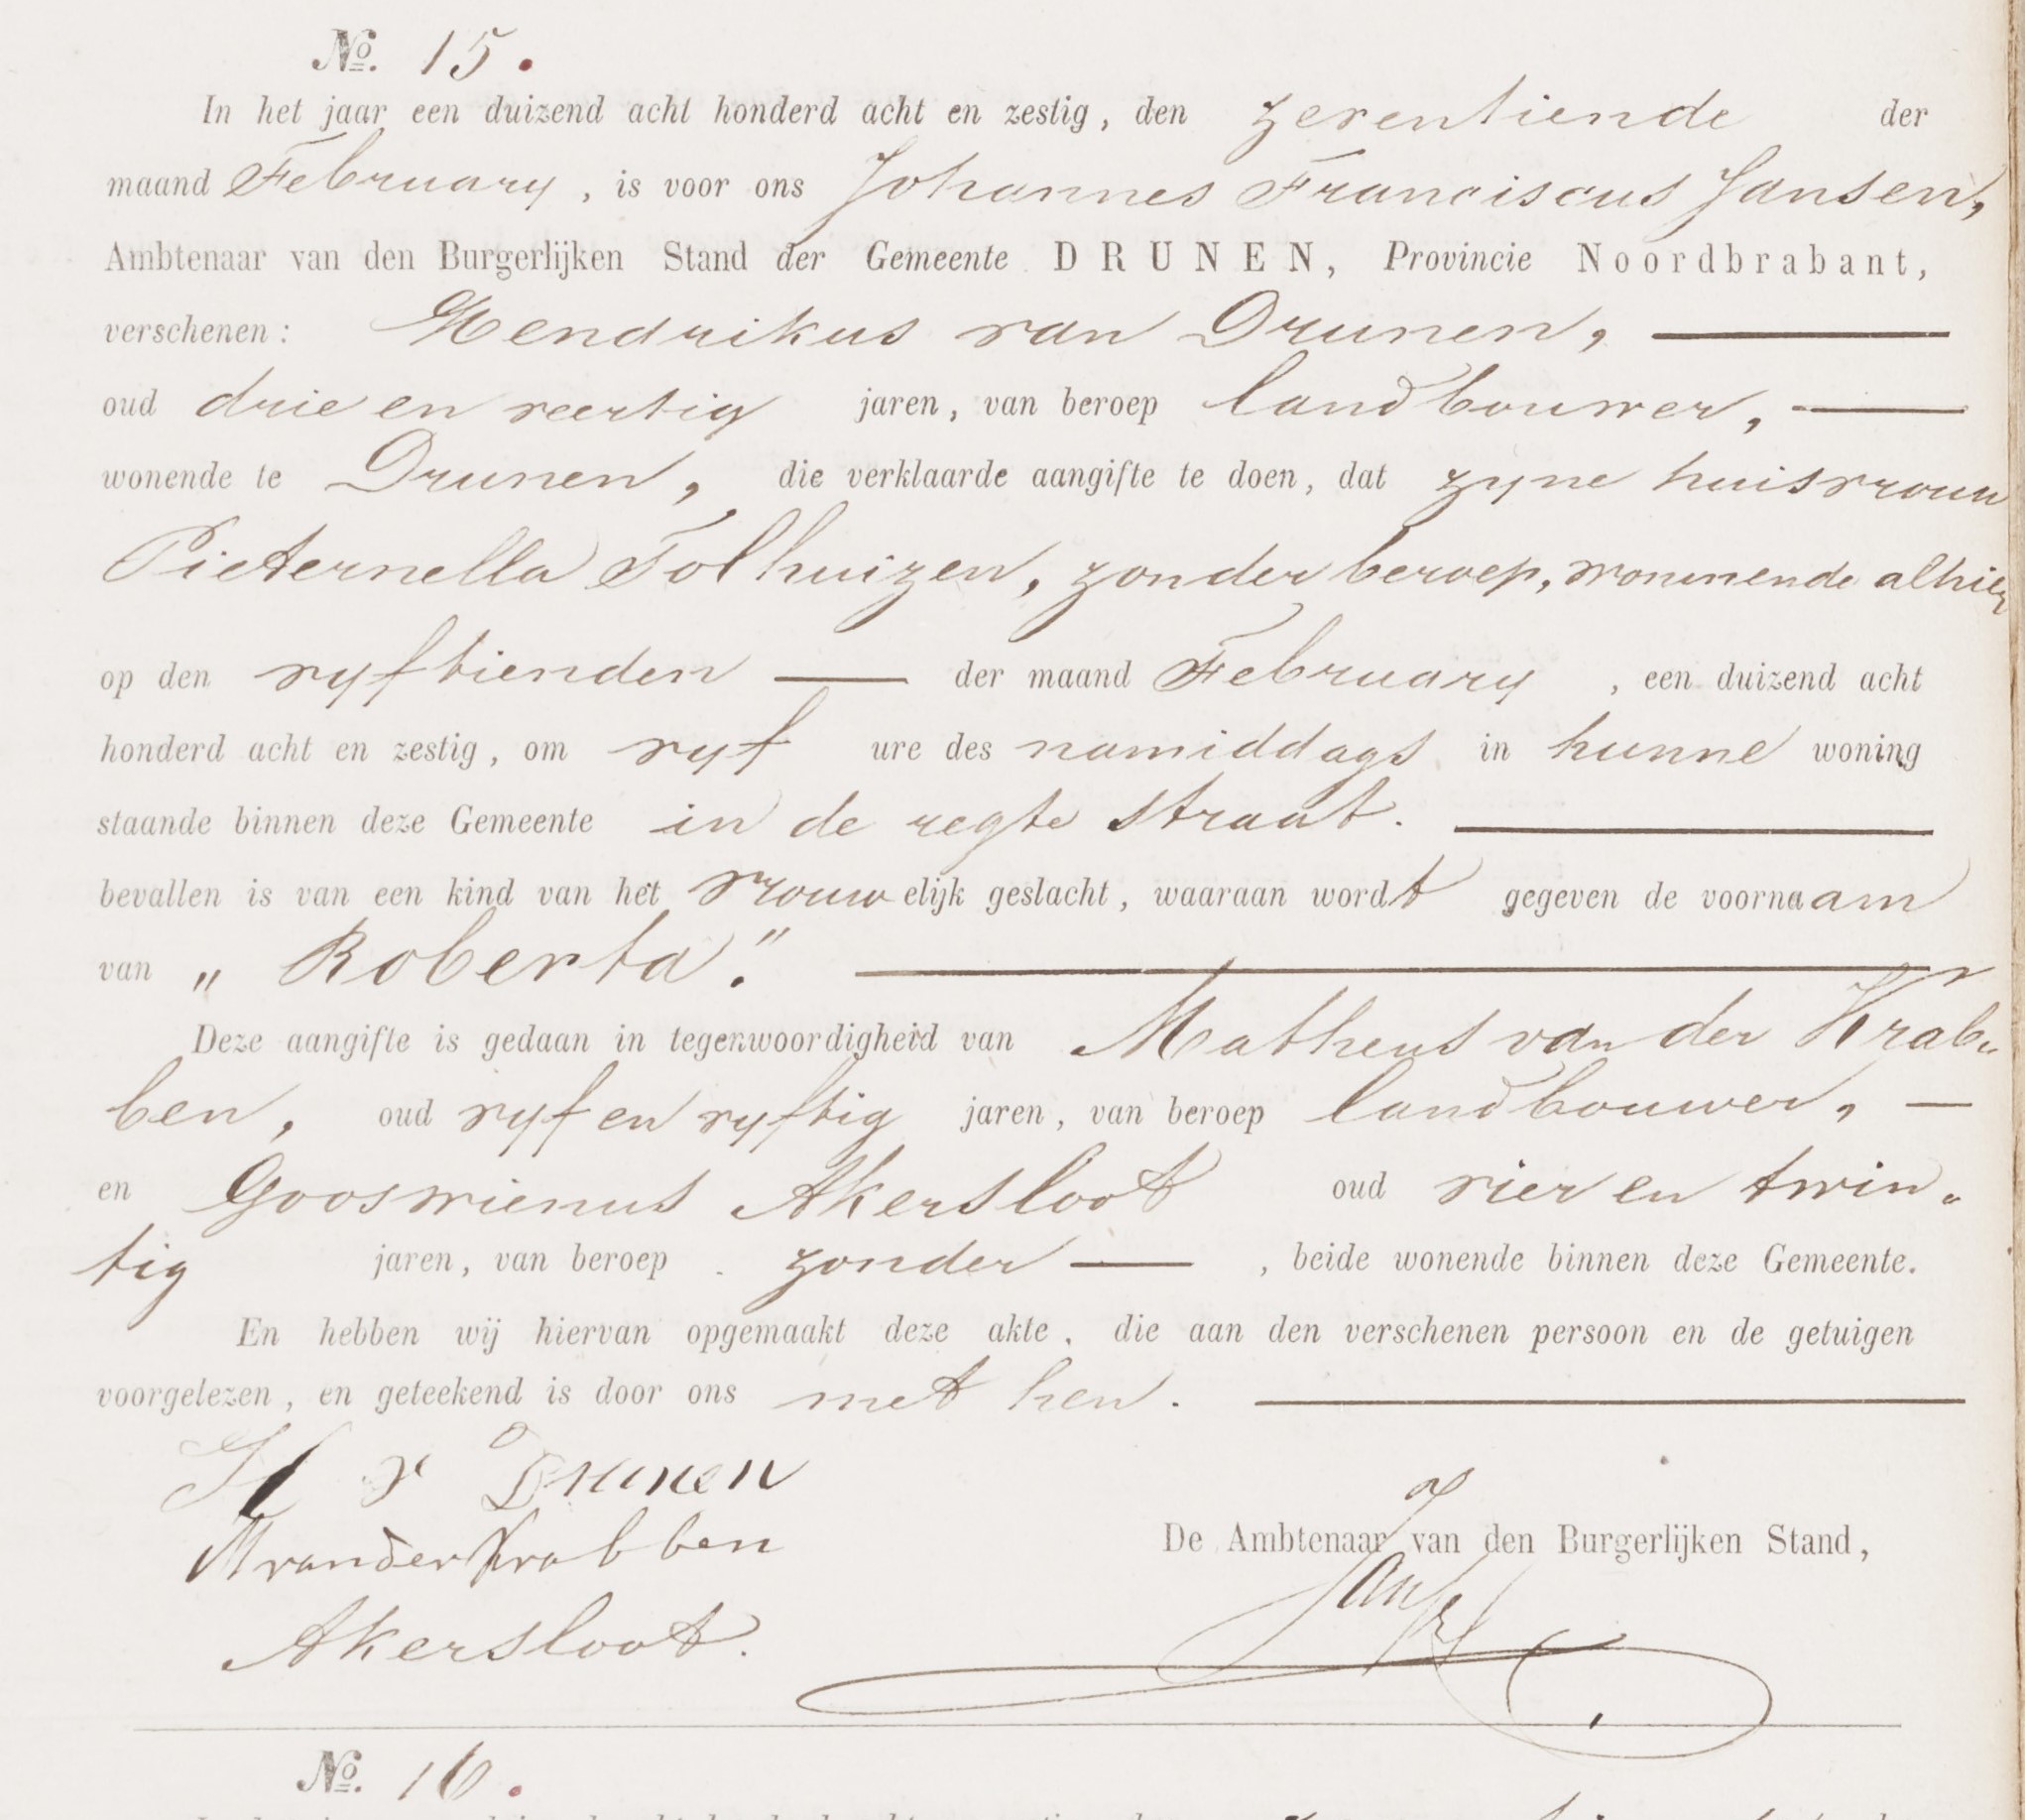 №. 15.
In het jaar een duizend acht honderd acht en zestig, den zeventiende der
maand February, is voor ons Johannes Franciscus Jansen,
Ambtenaar van den Burgerlijken Stand der Gemeente DRUNEN, Provincie Noordbrabant,
verschenen: Hendrikus van Drunen,
oud drie en veertig jaren, van beroep landbouwer,
wonende te Drunen, die verklaarde aangifte te doen, dat zyne huisvrouw
Pieternella Tolhuizen, zonder beroep, wonnende alhier
op den vyftienden der maand February, een duizend acht
honderd acht en zestig, om vyf ure des namiddags in hunne woning
staande binnen deze Gemeente in de regte straat.
bevallen is van een kind van het vrouwelijk geslacht, waaraan wordt gegeven de voornaam
van „Roberta".
Deze aangifte is gedaan in tegenwoordigheid van Matheus van der Krab„
ben, oud vyf en vyftig jaren, van beroep landbouwer,
en Gooswienus Akersloot oud vier en twin„
tig jaren, van beroep zonder, beide wonende binnen deze Gemeente.
En hebben wij hiervan opgemaakt deze akte, die aan den verschenen persoon en de getuigen
voorgelezen, en geteekend is door ons met hen.
H v Drunen
M van der Krabben
De Ambtenaar van den Burgerlijken Stand,
Jansen
Akersloot.
№. 16.